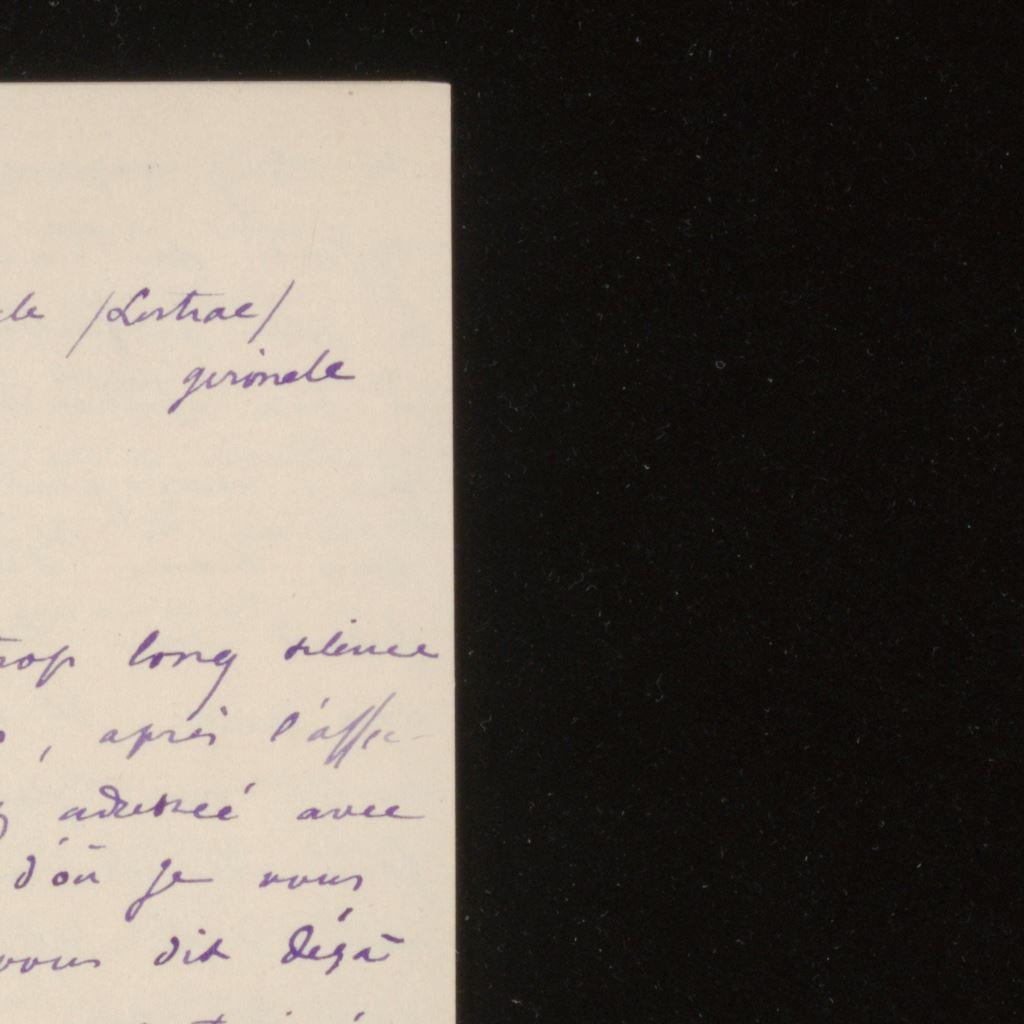 /Listrac/
gironde
trop long silence
, après l'affec-
adressée avec
d'où je vous
vous dit déjà